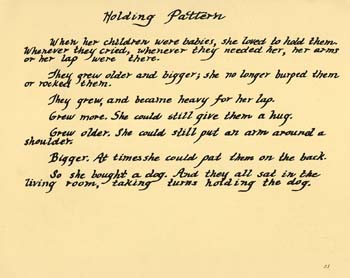 Holding Pattern
When her children were babies, she loved to hold them.
Whenever they cried, whenever they needed her, her arms
or her lap were there.
They grew older and bigger; she no longer burped them
or rocked them.
They grew, and became heavy for her lap.
Grew more. She could still give them a hug.
Grew older. She could still put an arm around a
shoulder.
Bigger. At times she could pat them on the back.
So she bought a dog. And they all sat in the
living room, taking turns holding the dog.